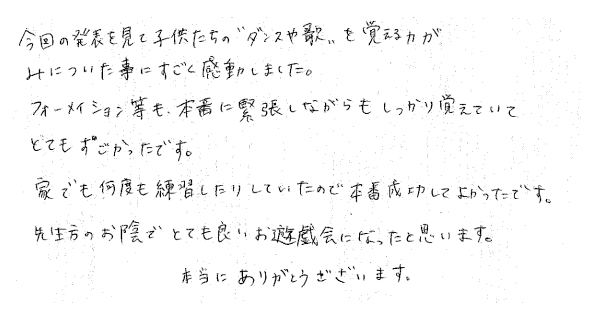 今回の発表を見て子供たちの"ダンスや歌"を覚える力が
みについた事にすごく感動しました。
フォーメイション等も、本番に緊張しながらもしっかり覚えていて
とてもすごかったです。
家でも何度も練習したりしていたので本番成功してよかったです。
先生方のお陰でとても良いお遊戯会になったと思います。
本当にありがとうございます。